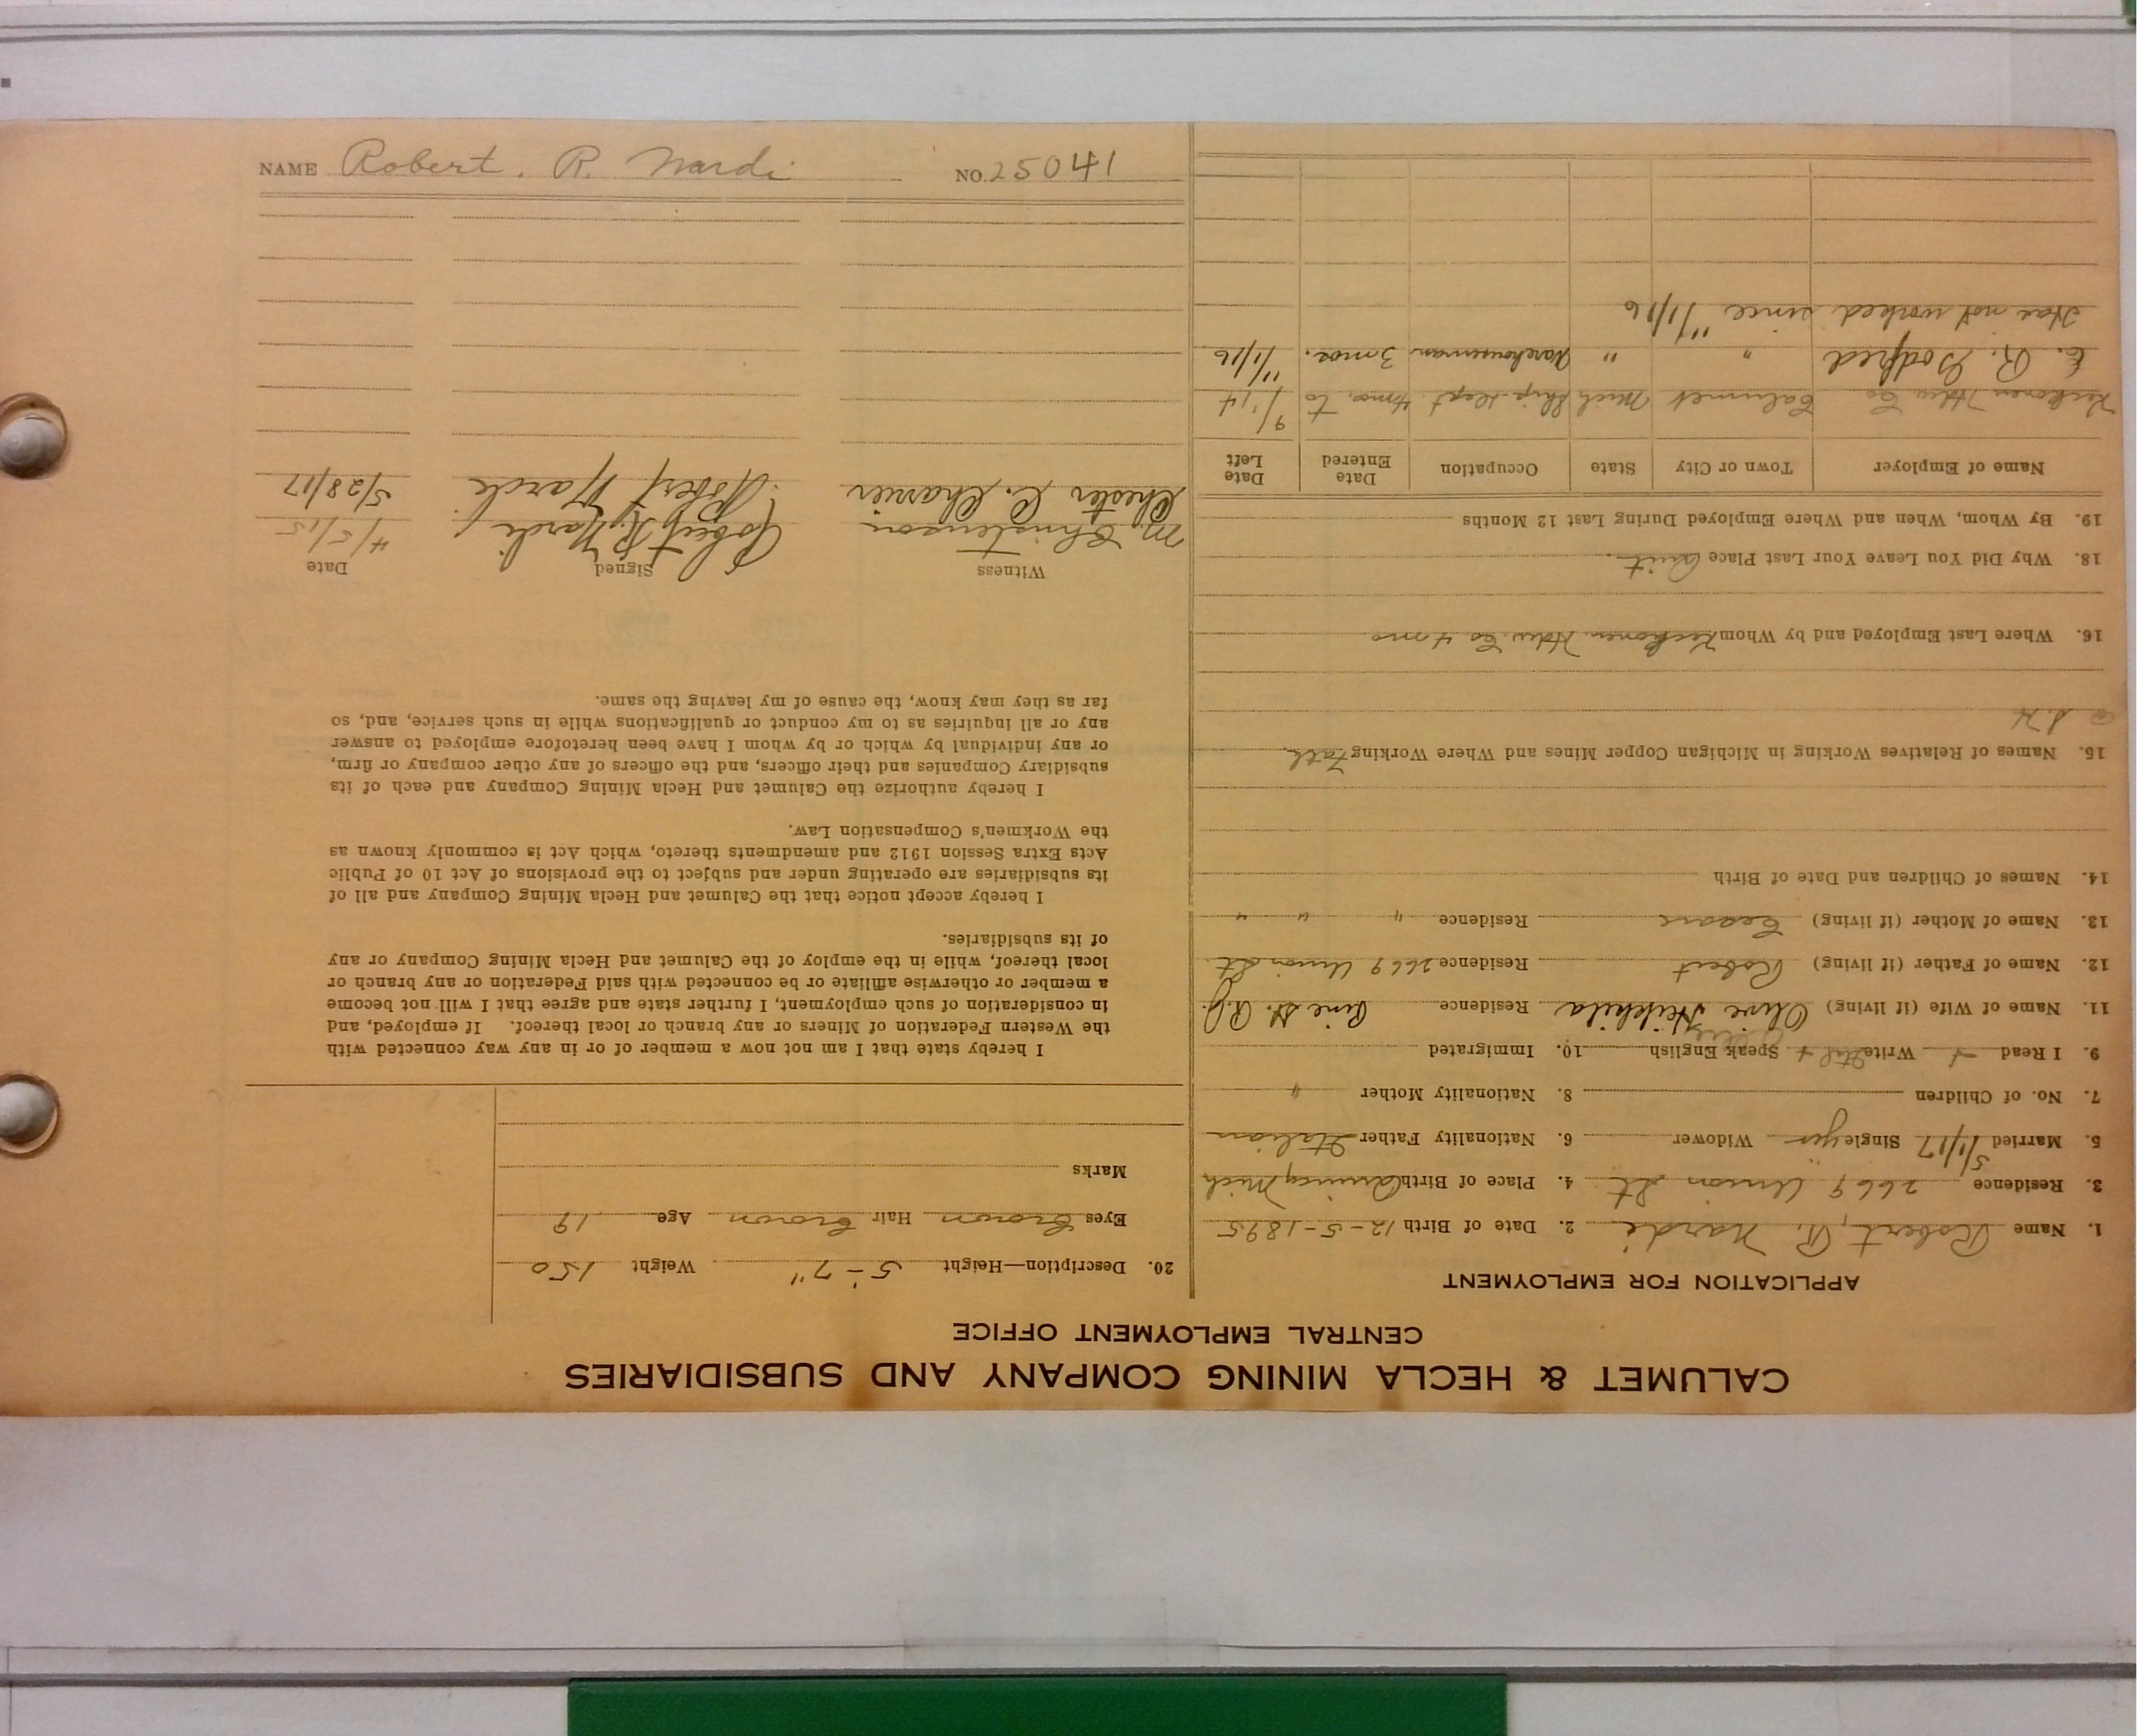 CALUMET & HECLA MINING COMPANY AND SUBSIDIARIES
CENTRAL EMPLOYMENT OFFICE
APPLICATION FOR EMPLOYMENT
1. Name Robert, R. Nardi 2. Date of Birth 12-5-1895
3. Residence 2669 Union St 4. Place of Birth Quincy Mich
5. Married 5/1/17 Single yes Widower 6. Nationality Father Italian
7. No. of Children 8. Nationality Mother "
9. I Read + Write Ital + Speak English 10. Immigrated
11. Name of Wife (if living) Olive Heikkila Residence Pine St.
12. Name of Father (if living) Robert Residence 2669 Union St.
13. Name of Mother (if living) Residence " " "
14. Names of Children and Date of Birth
15. Names of Relatives Working in Michigan Copper Mines and Where Working
16. Where Last Employed and by Whom Keckonen Hdw. Co 4 mo
18. Why Did You Leave Your Last Place Quit.
19. By Whom, When and Where Employed During Last 12 Months
Name of Employer Town or City State Occupation Date Entered Date Left
Keckonen Hdw. Co Calumet Mich Ship. Dept 4 mos. to 9/1/14
C. R. Godfred " " Warehouseman 3 mos. 11/1/16
Has not worked since 11/1/16
20. Description—Height 5'-7" Weight 150
Eyes Brown Hair Brown Age 19
Marks
I hereby state that I am not now a member of or in any way connected with
the Western Federation of Miners or any branch or local thereof. If employed, and
in consideration of such employment, I further state and agree that I will not become
a member or otherwise affiliate or be connected with said Federation or any branch or
local thereof, while in the employ of the Calumet and Hecla Mining Company or any
of its subsidiaries.
I hereby accept notice that the Calumet and Hecla Mining Company and all of
its subsidiaries are operating under and subject to the provisions of Act 10 of Public
Acts Extra Session 1912 and amendments thereto, which Act is commonly known as
the Workmen's Compensation Law.
I hereby authorize the Calumet and Hecla Mining Company and each of its
subsidiary Companies and their officers, and the officers of any other company or firm,
or any individual by which or by whom I have been heretofore employed to answer
any or all inquiries as to my conduct or qualifications while in such service, and, so
far as they may know, the cause of my leaving the same.
Witness Signed Date
M. Christenson Robert R. Nardi 4/5/15
Chester C. Charrier Robert Nardi 5/28/17
NAME Robert. R. Nardi NO. 25041